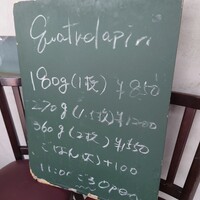 Quatrelapin
180g(1枚)¥850
270g(1.5枚)¥1200
360g(2枚)¥1550
ごはん大+100
11:00ごろOPEN